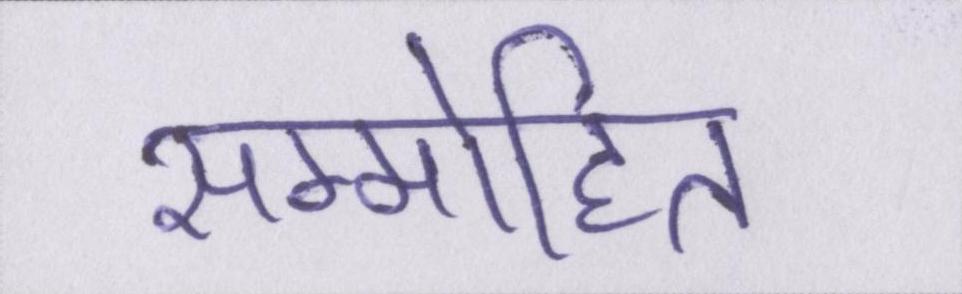 सम्मोहित